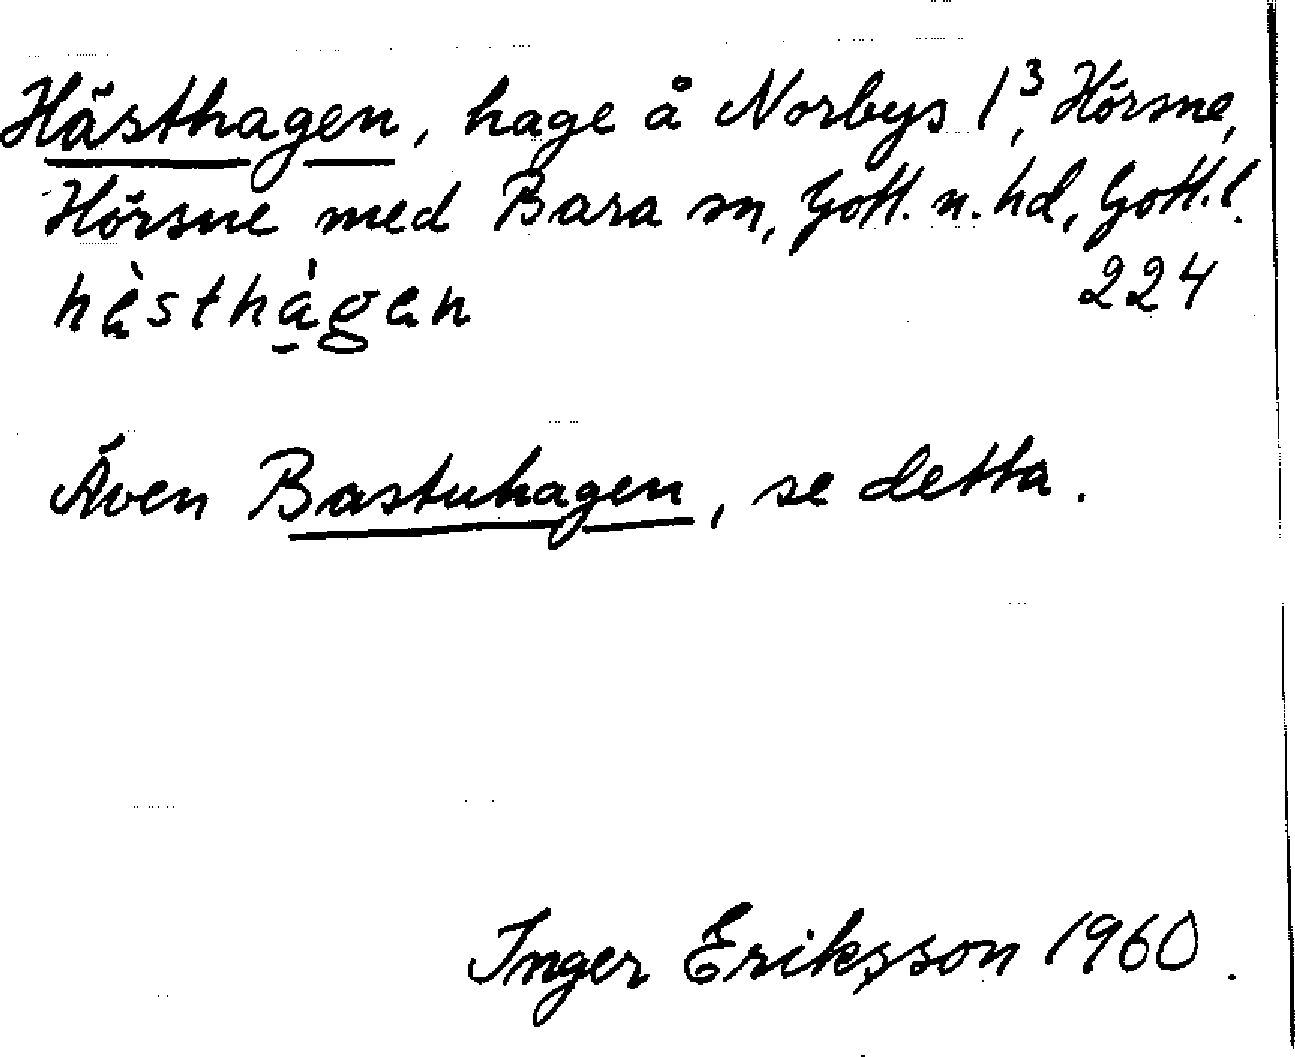 Hästhagen, hage å Norbys 1³, Hörsne,
Hörsne med Bara sn, Gotl. n. hd, Gotl. l.
hèsthàgen 224
Även Bastuhagen, se detta.
Inger Eriksson 1960.